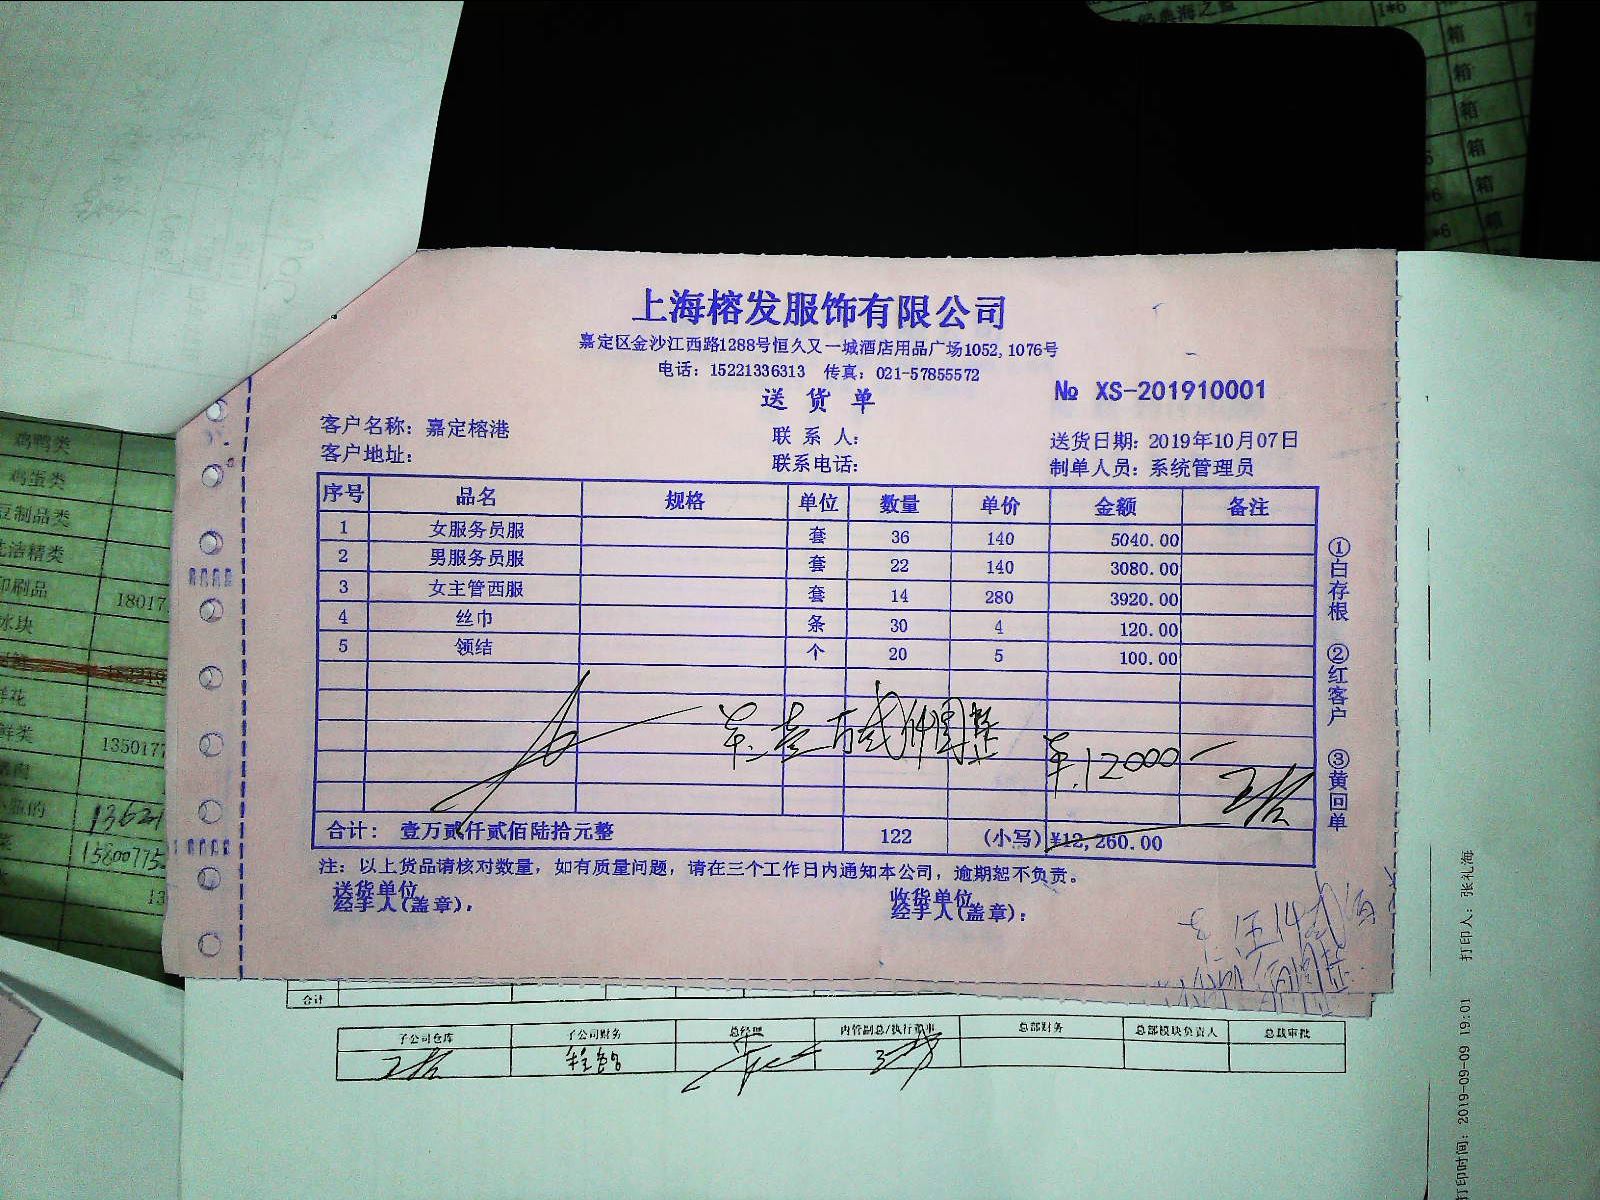 上海榕发服饰有限公司
嘉定区金沙江西路1288号恒久又一城酒店用品广场1052,1076号
电话：15221336313 传真：021-57855572
送货单
№ XS-201910001
客户名称：嘉定榕港 联系人： 送货日期：2019年10月07日
客户地址： 联系电话： 制单人员：系统管理员
序号 品名 规格 单位 数量 单价 金额 备注
1 女服务员服 套 36 140 5040.00
2 男服务员服 套 22 140 3080.00
3 女主管西服 套 14 280 3920.00
4 丝巾 条 30 4 120.00
5 领结 个 20 5 100.00
羊.壹万贰仟圆整
羊.12000—
合计： 壹万贰仟贰佰陆拾元整 122 (小写) ¥12,260.00
注：以上货品请核对数量，如有质量问题，请在三个工作日内通知本公司，逾期恕不负责。
送货单位 收货单位
经手人(盖章)： 经手人(盖章)：
①白存根 ②红客户 ③黄回单
合计
子公司仓库 子公司财务 总经理 内管副总/执行董事 总部财务 总部模块负责人 总裁审批
打印时间：2019-09-09 19:01 打印人：张礼海
鸡鸭类
鸡蛋类
豆制品类
洗洁精类
印刷品 18017
冰块
鲜花
鲜类 1350177
13621
15800775
13
1*6 箱
箱
箱
箱
箱
*6 箱
*6 箱